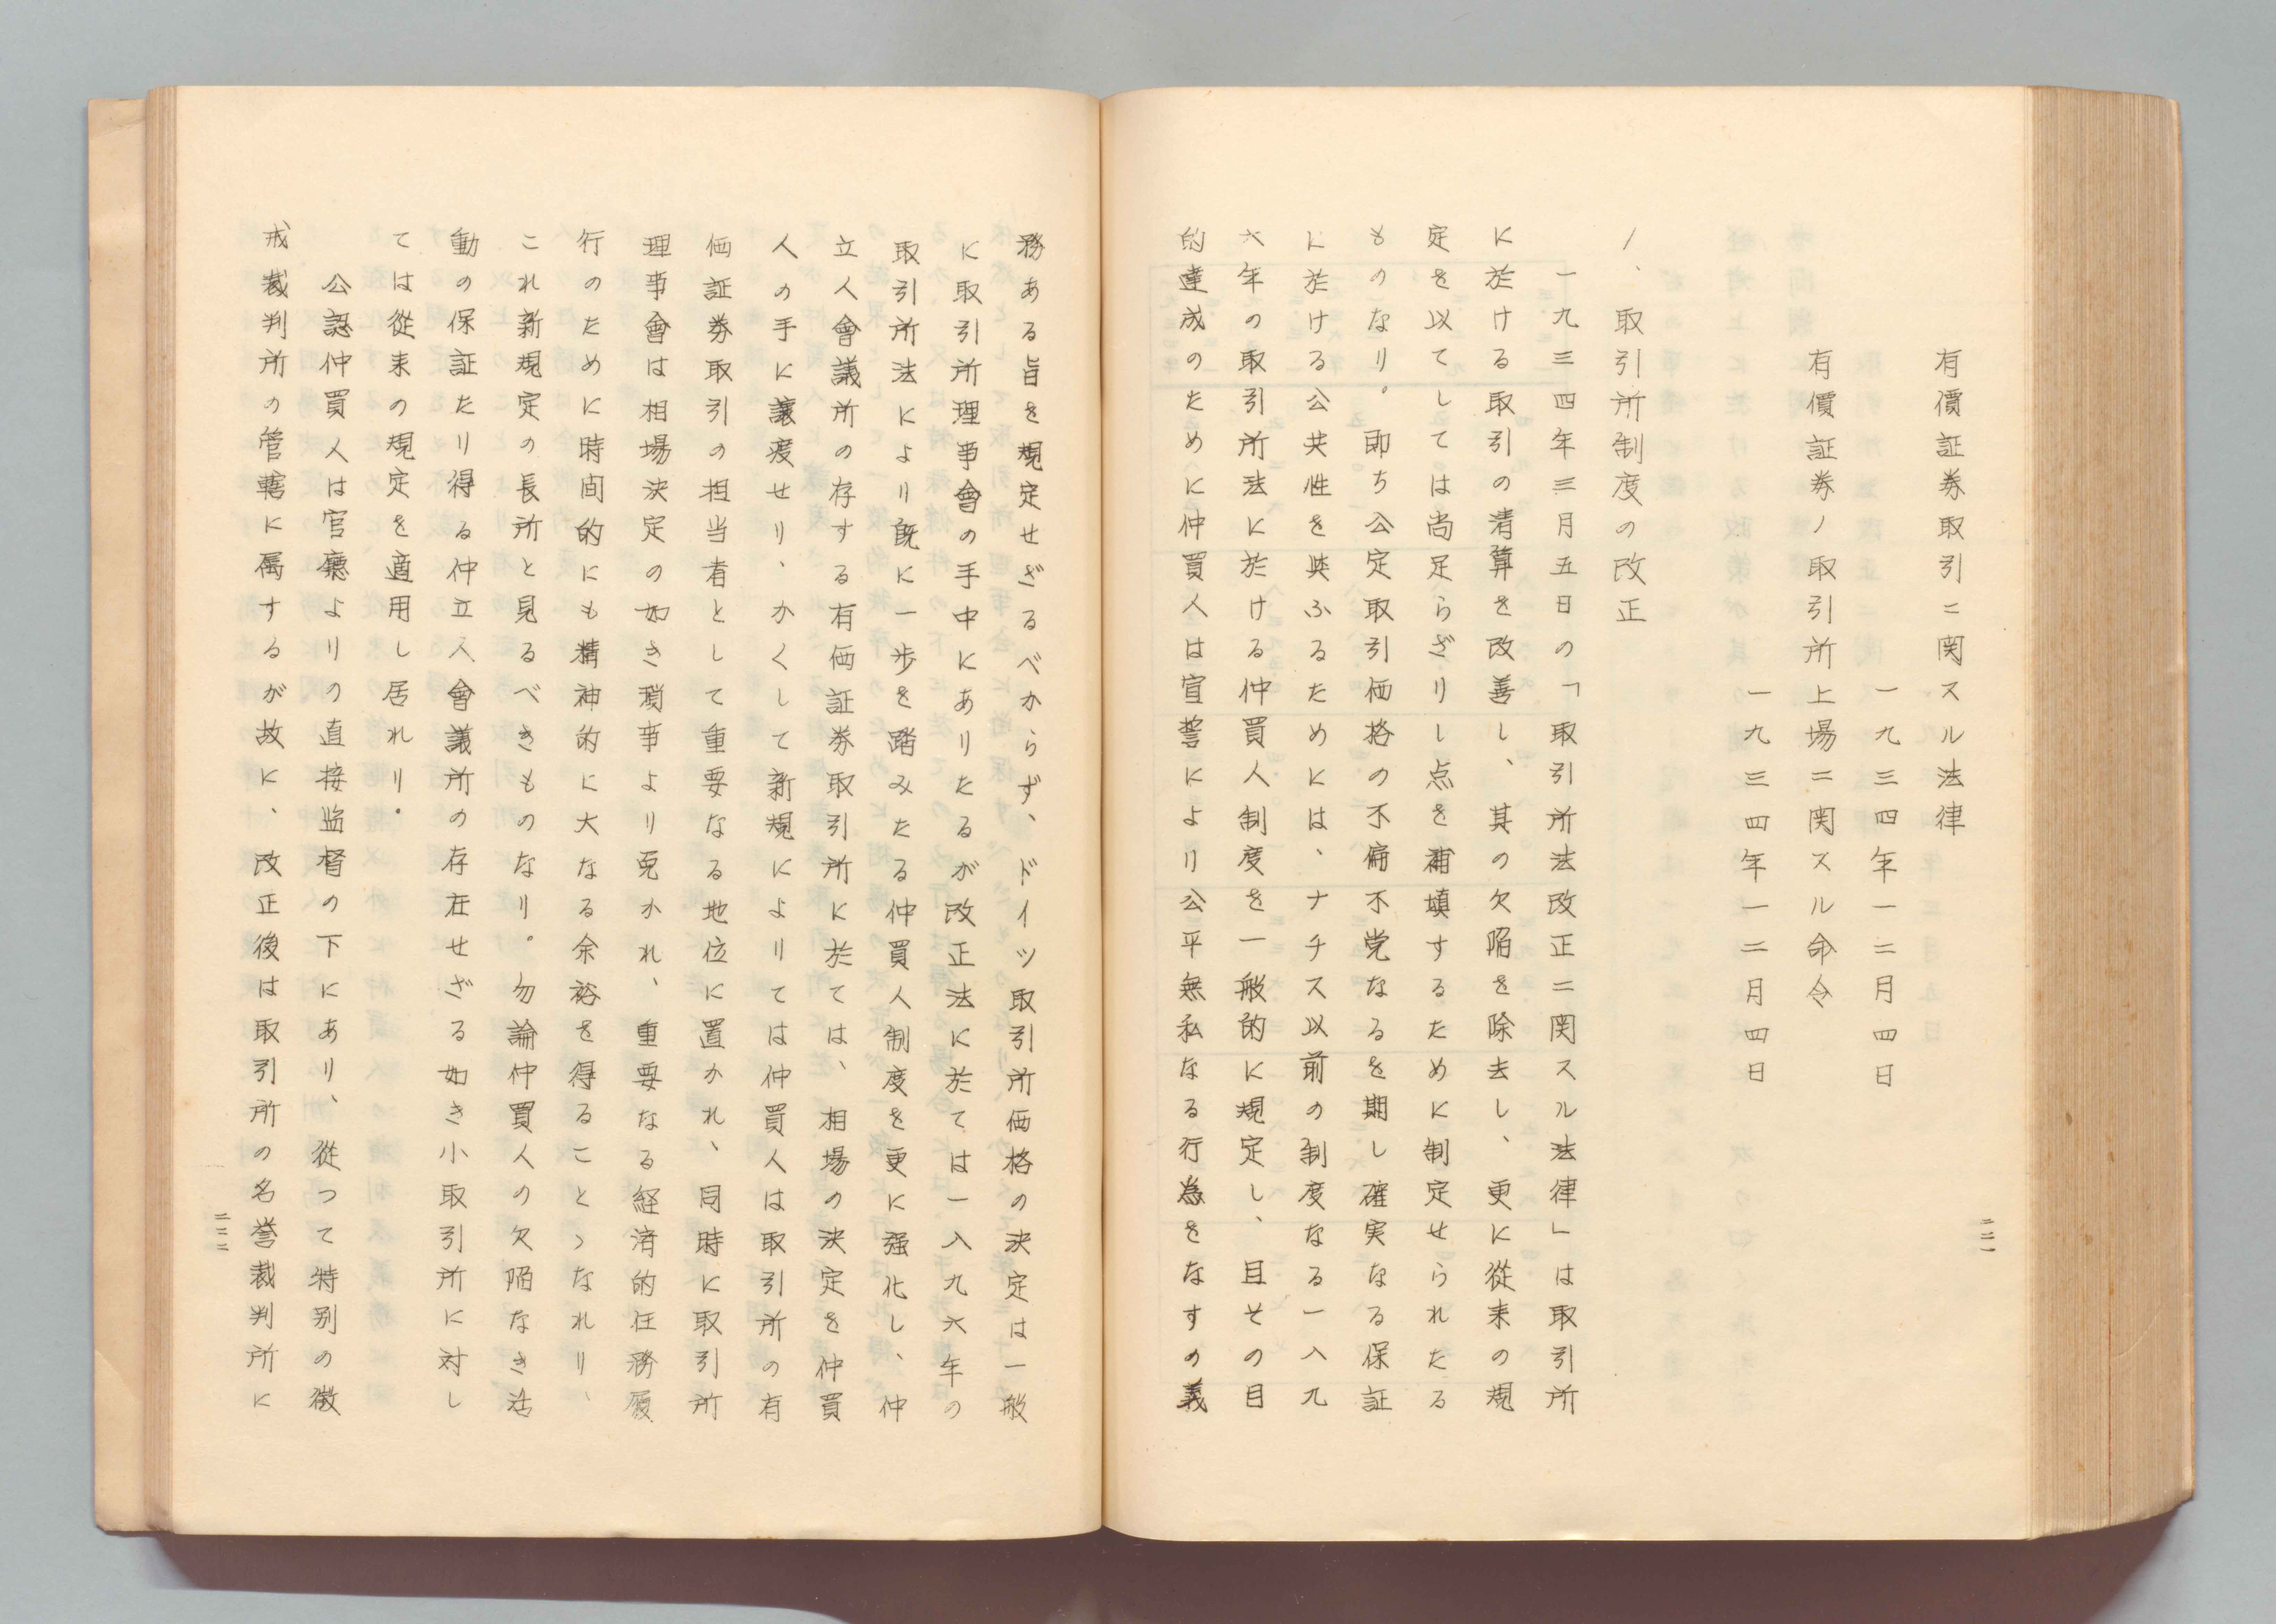 有價証券取引ニ関スル法律
一九三四年一二月四日
有價証券ノ取引所上場ニ関スル命令
一九三四年一二月四日
1、取引所制度の改正
一九三四年三月五日の「取引所法改正ニ関スル法律」は取引所
に於ける取引の清算を改善し、其の欠陥を除去し、更に従来の規
定を以てしては尚足らざりし点を補塡するために制定せられたる
ものなり。即ち公定取引価格の不偏不党なるを期し確実なる保証
に於ける公共性を與ふるためには、ナチス以前の制度なる一八九
六年の取引所法に於ける仲買人制度を一般的に規定し、且その目
的達成のために仲買人は宣誓により公平無私なる行為をなすの義
二二一
務ある旨を規定せざるべからず、ドイツ取引所価格の決定は一般
に取引所理事會の手中にありたるが改正法に於ては一八九六年の
取引所法により既に一歩を踏みたる仲買人制度を更に强化し、仲
立人會議所の存する有価証券取引所に於ては、相場の決定を仲買
人の手に讓渡せり、かくして新規によりては仲買人は取引所の有
価証券取引の担当者として重要なる地位に置かれ、同時に取引所
理事會は相場決定の如き瑣事より免かれ、重要なる経済的任務履
行のために時間的にも精神的に大なる余裕を得ることゝなれり、
これ新規定の長所と見るべきものなり。勿論仲買人の欠陥なき活
動の保証たり得る仲立人會議所の存在せざる如き小取引所に対し
ては従来の規定を適用し居れり。
公認仲買人は官廳よりの直接監督の下にあり、従つて特别の徴
戒裁判所の管轄に属するが故に、改正後は取引所の名誉裁判所に
二二二